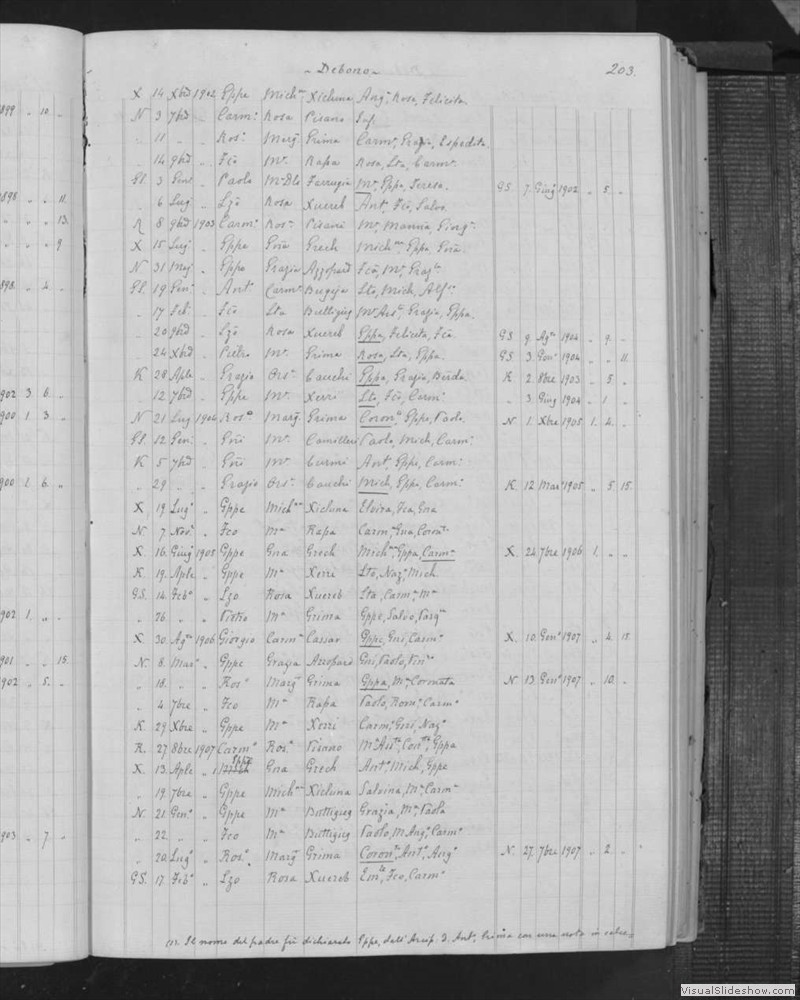 - Debono - 203.
X 14 Xbre 1902 Gppe Mich.na Xicluna Ang.a Rosa, Felicita.
1899 " 10. " N 3 7bre " Carm.o Rosa Pisano Sap.
" 11 " " Ros.o Marg.ta Grima Carm.a, Grazia, Espedita.
" 14 9bre " Fco M.a Rapa Rosa, Sta, Carm.a
Gl. 3 Gen.o " Paolo M.a Dla Farrugia M.a, Gppa, Teresa. GS 7. Giug.o 1902 " 5. "
1898 " " 11. " 6 Lug.o " Lzo Rosa Xuereb Ant.o, Fco, Salvo.
" " " 13. R 8 9bre 1903 Carm.o Ros.a Pisani M.a Mannia, Giorg.a
" " " 9 X 15 Lug.o " Gppe Gna Grech Mich.na, Gppa, Gna.
N 31 Mag.o " Gppe Grazia Azzopard Fca, M.a, Graz.la
1898. " 2. " Gl. 19 Gen.o " Ant.o Carm.a Bugeja Sto, Mich, Alf.o
" 17 Feb.o " Fco Sta Buttigieg M.a Ass.ta, Grazia, Gppa.
" 20 9bre " Lzo Rosa Xuereb Gppa, Felicita, Fca. GS 9. Ag.o 1904 " 9. "
" 24 Xbre " Pietro M.a Grima Rosa, Sta, Gppa. GS 3. Gen.o 1904 " " 11.
K 28 Aple " Grazio Ors.a Cauchi Gppa, Grazia, Berda. K 2. 8bre 1903 " 5 "
1902 3 6. " " 12 7bre " Gppe M.a Xerri Sto, Fco, Carm.o " 3 Giug 1904 " 1 "
1900 1. 3 " N 21 Lug 1904 Ros.o Marg.ta Grima Coron.o, Gppe, Paolo. N 1. Xbre 1905 1. 4. "
Gl. 12 Gen.o " Gni M.a Camilleri Paolo, Mich, Carm.o
K 5 7bre " Gni M.a Curmi Ant.o, Gppe, Carm.o
1900 1. 6 " " 29 " " Grazio Ors.a Cauchi Mich, Gppe, Carm.o K. 12 Mar.o 1905 " 5 15.
X 19 Lug.o " Gppe Mich.na Xicluna Elvira, Fca, Gna
N. 7. Nov.e " Fco M.a Rapa Carm.a, Gna, Coron.ta
X. 16. Giug.o 1905 Gppe Gna Grech Mich.na, Gppa, Carm.a X. 24. 7bre 1906 1. " "
K. 19. Aple " Gppe M.a Xerri Sto, Naz.o, Mich.
G.S. 14. Feb.o " Lzo Rosa Xuereb Sta, Carm.a, M.a
1902 1. " " " 26 " " Pietro M.a Grima Gppe, Salvo, Pasq.le
X 30. Ag.o 1906 Giorgio Carm.a Cassar Gppe, Gni, Carm.o X. 10. Gen.o 1907 " 4. 15.
1901 " " 15. N. 8. Mar.o " Gppe Grazia Azzopard Gni, Paolo,
1902 " 5. " " 18. " " Ros.o Marg.ta Grima Gppa, M.a, Coronata N 13 Gen.o 1907 " 10. "
" 4 7bre " Fco M.a Rapa Paolo, Rom.o, Carm.o
K. 29 Xbre " Gppe M.a Xerri Carm.o, Gni, Naz.o
R. 27 8bre 1907 Carm.o Ros.a Pisano M.a Ass.ta, Con.ta, Gppa
X. 13. Aple " Gppe Gna Grech Ant.o, Mich, Gppe
" 19. 7bre " Gppe Mich.na Xicluna Salvina, M.a, Carm.a
N. 21 Gen.o " Gppe M.a Buttigieg Grazia, M.a, Paola
1903 " 7. " " 22. " " Fco M.a Buttigieg Paolo, M. Ang.o, Carm.o
" 20 Lug.o " Ros.o Marg.ta Grima Coron.ta, Ant.a, Ang.a N. 27. 7bre 1907 " 2. "
GS. 17 Feb.o " Lzo Rosa Xuereb Em.le, Fco, Carm.o
(1). Il nome del padre fù dichiarato Gppe, dall' Arcip. D. Ant.o Grima con una nota in
VisualSlideshow.com